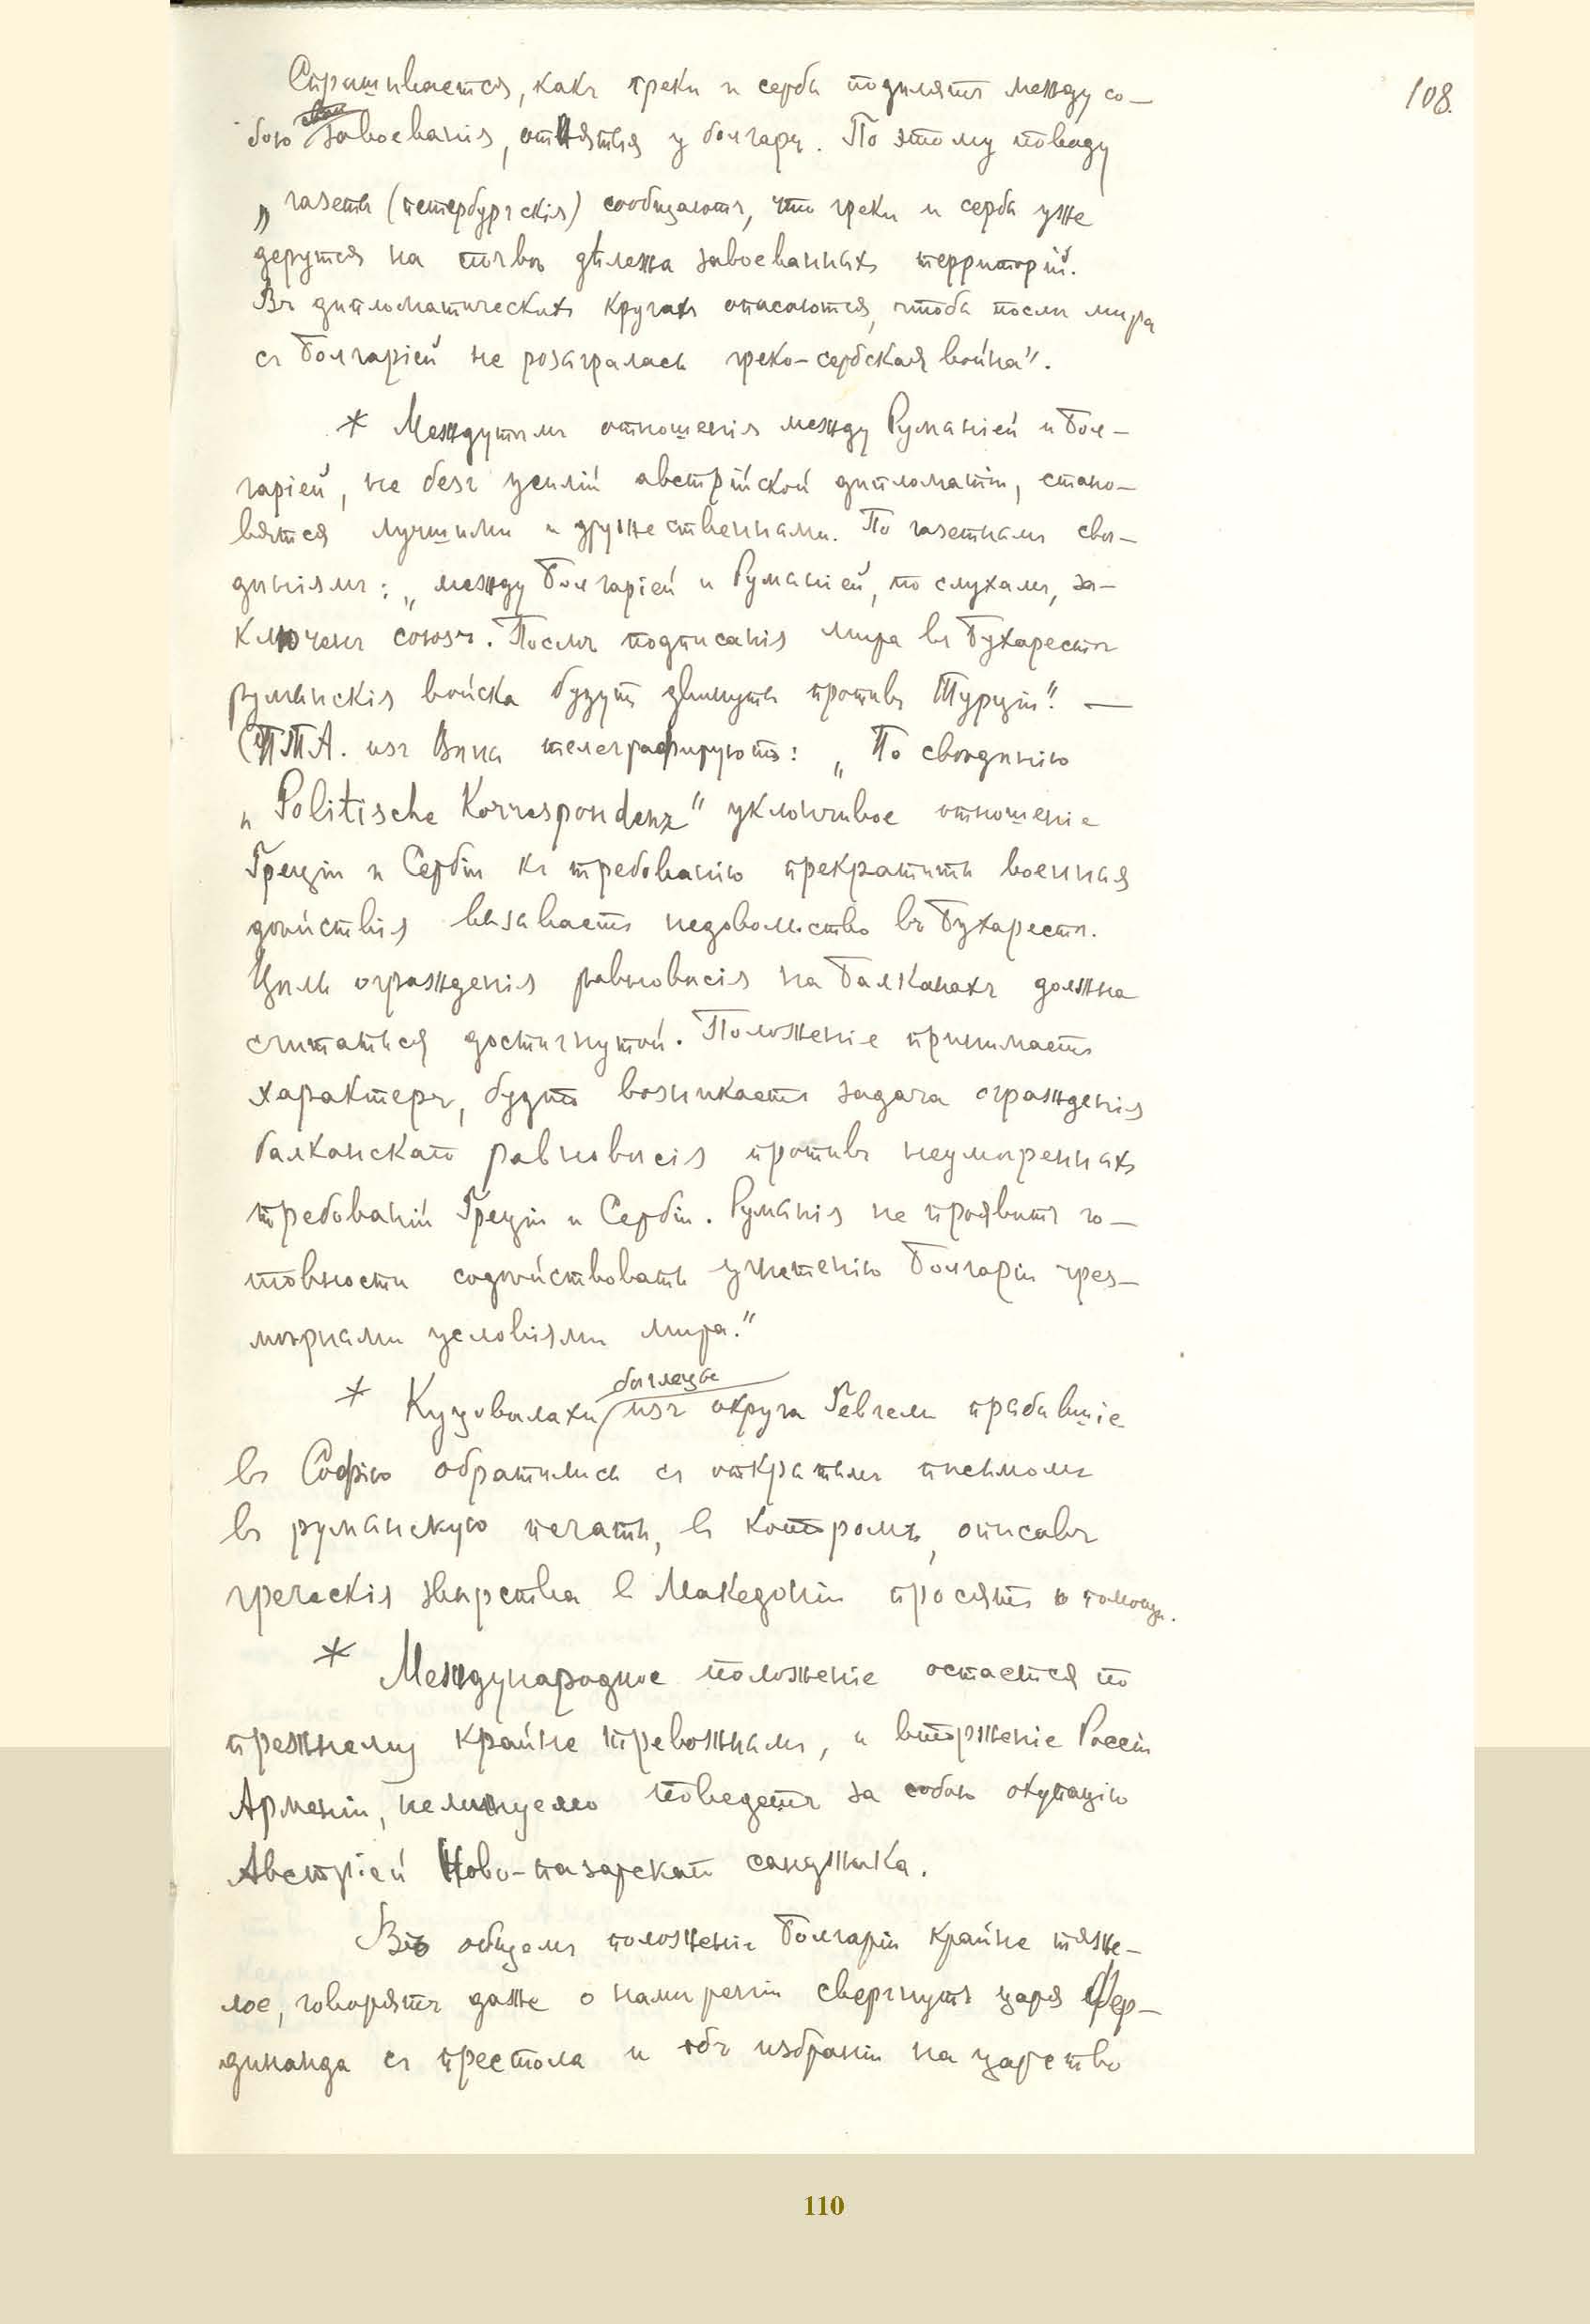 108.
Спрашивается, какъ греки и сербы подѣлятъ между со-
бою завоеванія, отнятыя у болгаръ. По этому поводу
„газеты (петербургскія) сообщаютъ, что греки и сербы уже
дерутся на почвѣ дѣлежа завоеванныхъ территорій.
Въ дипломатическихъ кругахъ опасаются, чтобы послѣ мира
съ Болгаріей не розыгралась греко-сербская война".
* Междутѣмъ отношенія между Румыніей и Бол-
гаріей, не безъ усилій австрійской дипломатіи, стано-
вятся лучшими и дружественными. По газетнымъ свѣ-
дѣніямъ: „между Болгаріей и Румыніей, по слухамъ, за-
ключенъ союзъ. Послѣ подписанія мира въ Бухарестѣ
румынскія войска будутъ двинуты противъ Турціи". —
(ПТА. изъ Вѣны телеграфируютъ: „По свѣдѣнію
„Politische Korrespondenz" уклончивое отношеніе
Греціи и Сербіи къ требованію прекратить военныя
дѣйствія вызываетъ недовольство въ Бухарестѣ.
Цѣль огражденія равновѣсія на Балканахъ должна
считаться достигнутой. Положеніе принимаетъ
характеръ, будто возникаетъ задача огражденія
балканскаго равновѣсія противъ неумѣренныхъ
требованій Греціи и Сербіи. Румынія не проявитъ го-
товности содѣйствовать угнетенію Болгаріи чрез-
мѣрными условіями мира."
бѣглецы
* Куцовалахи изъ округа Гевгели прибывшіе
въ Софію обратились съ открытымъ письмомъ
въ румынскую печать, въ которомъ, описавъ
греческія звѣрства въ Македоніи просятъ о помощи.
* Международное положеніе остается по
прежнему крайне тревожнымъ, и вторженіе Россіи
Арменіи, неминуемо поведетъ за собою окупацію
Австріей Ново-пазарскаго санджака.
Въ общемъ положеніе Болгаріи крайне тяже-
лое, говорятъ даже о намѣреніи свергнуть царя Фер-
динанда съ престола и объ избраніи на царство
110